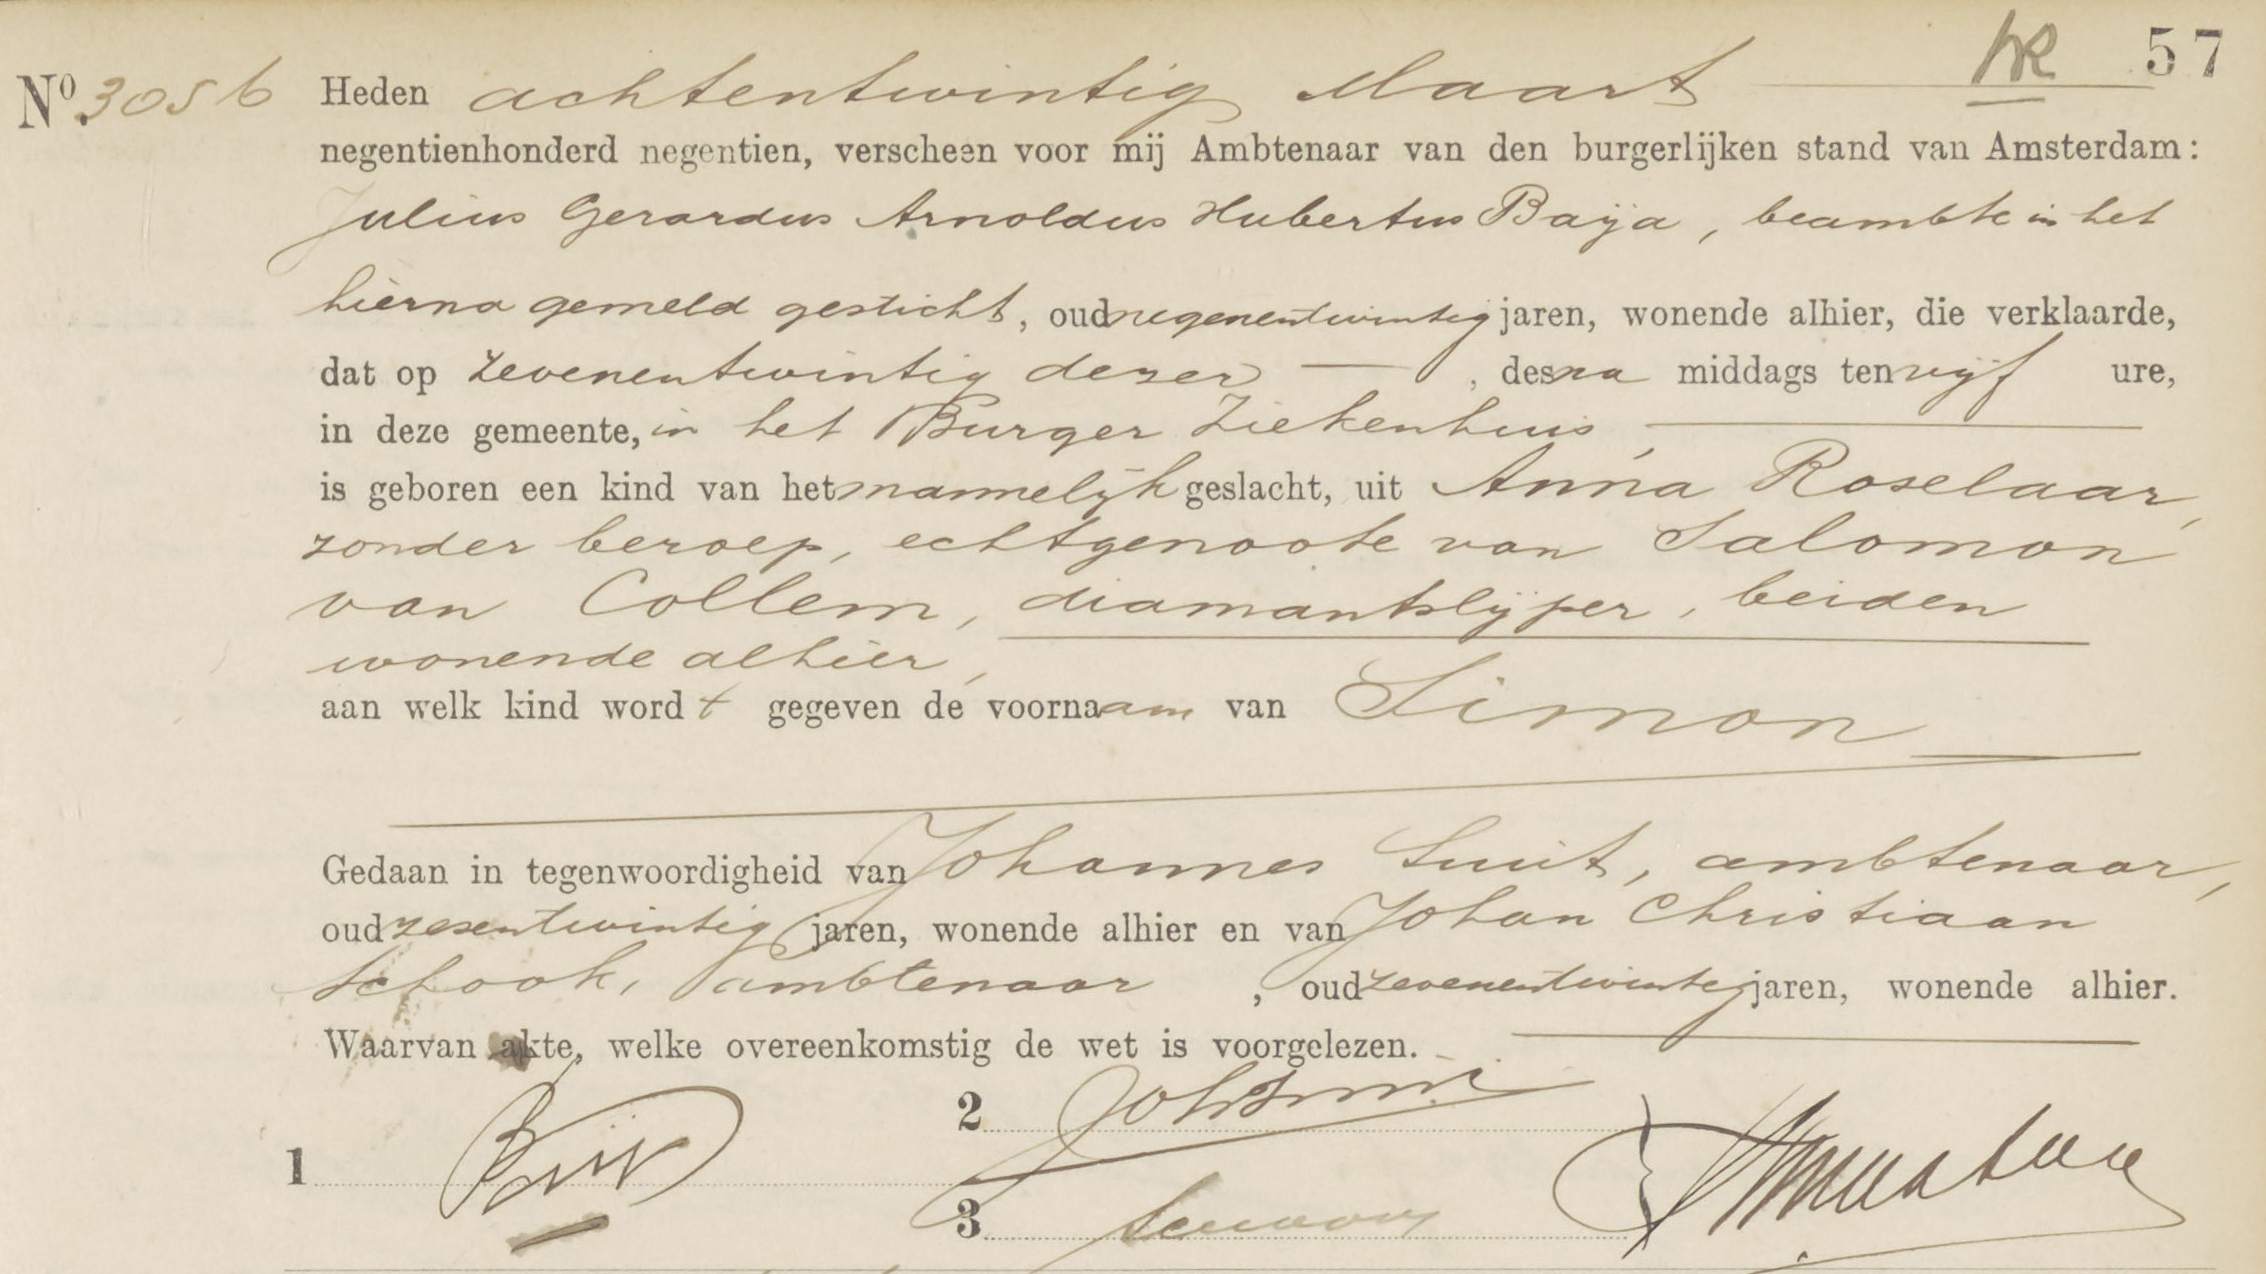 57
No. 3056 Heden achtentwintig Maart
negentienhonderd negentien, verscheen voor mij Ambtenaar van den burgerlijken stand van Amsterdam:
Julius Gerardus Arnoldus Hubertus Baija, beambte in het
hierna gemeld gesticht, oud negenentwintig jaren, wonende alhier, die verklaarde,
dat op zevenentwintig dezer, des na middags ten vijf ure,
in deze gemeente, in het Burger Ziekenhuis,
is geboren een kind van het mannelijk geslacht, uit Anna Roselaar,
zonder beroep, echtgenoote van Salomon
van Collem, diamantslijper, beiden
wonende alhier,
aan welk kind wordt gegeven de voornaam van Simon
Gedaan in tegenwoordigheid van Johannes Smit, ambtenaar,
oud zesentwintig jaren, wonende alhier en van Johan Christiaan
Schook, ambtenaar, oud zevenentwintig jaren, wonende alhier.
Waarvan akte, welke overeenkomstig de wet is voorgelezen.
2
1
3